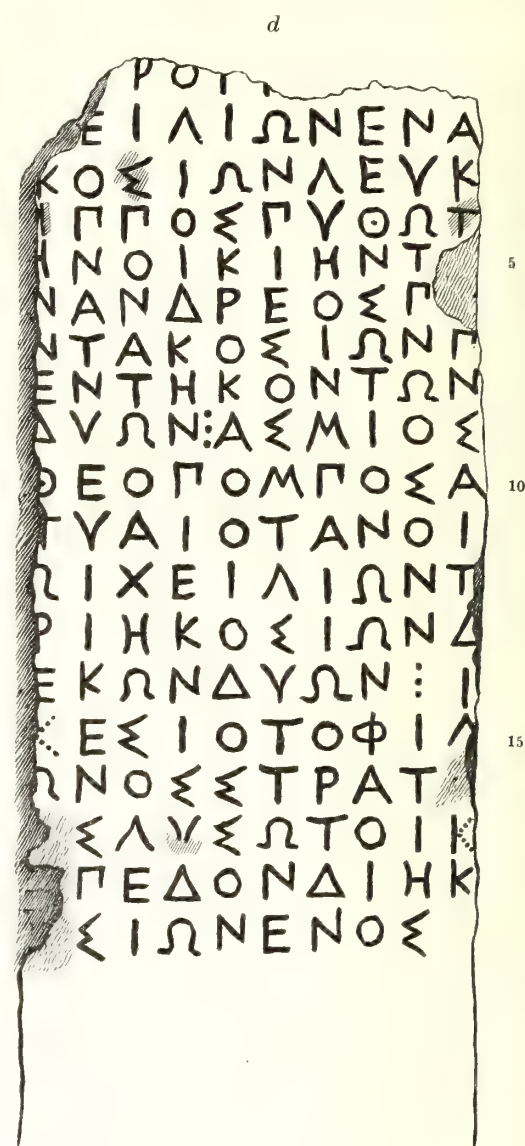 d
ΡΟΙΙ
ΕΙΛΙΩΝΕΝΑ
ΚΟΣΙΩΝΛΕΥΚ
ΙΠΠΟΣΠΥΘΩΤ
ΙΝΟΙΚΙΗΝΤ 5
ΝΑΝΔΡΕΟΣΠ
ΝΤΑΚΟΣΙΩΝΠ
ΕΝΤΗΚΟΝΤΩΝ
ΔΥΩΝ⋮ΑΣΜΙΟΣ
ΘΕΟΠΟΜΠΟΣΑ 10
ΓΥΑΙΟΤΑΝΟΙ
ΩΙΧΕΙΛΙΩΝΤ
ΡΙΗΚΟΣΙΩΝΔ
ΕΚΩΝΔΥΩΝ⋮Ι
ΚΕΣΙΟΤΟΦΙΛ 15
ΩΝΟΣΣΤΡΑΤ
ΣΛΥΣΩΤΟΙΚ
ΠΕΔΟΝΔΙΗΚ
ΣΙΩΝΕΝΟΣ